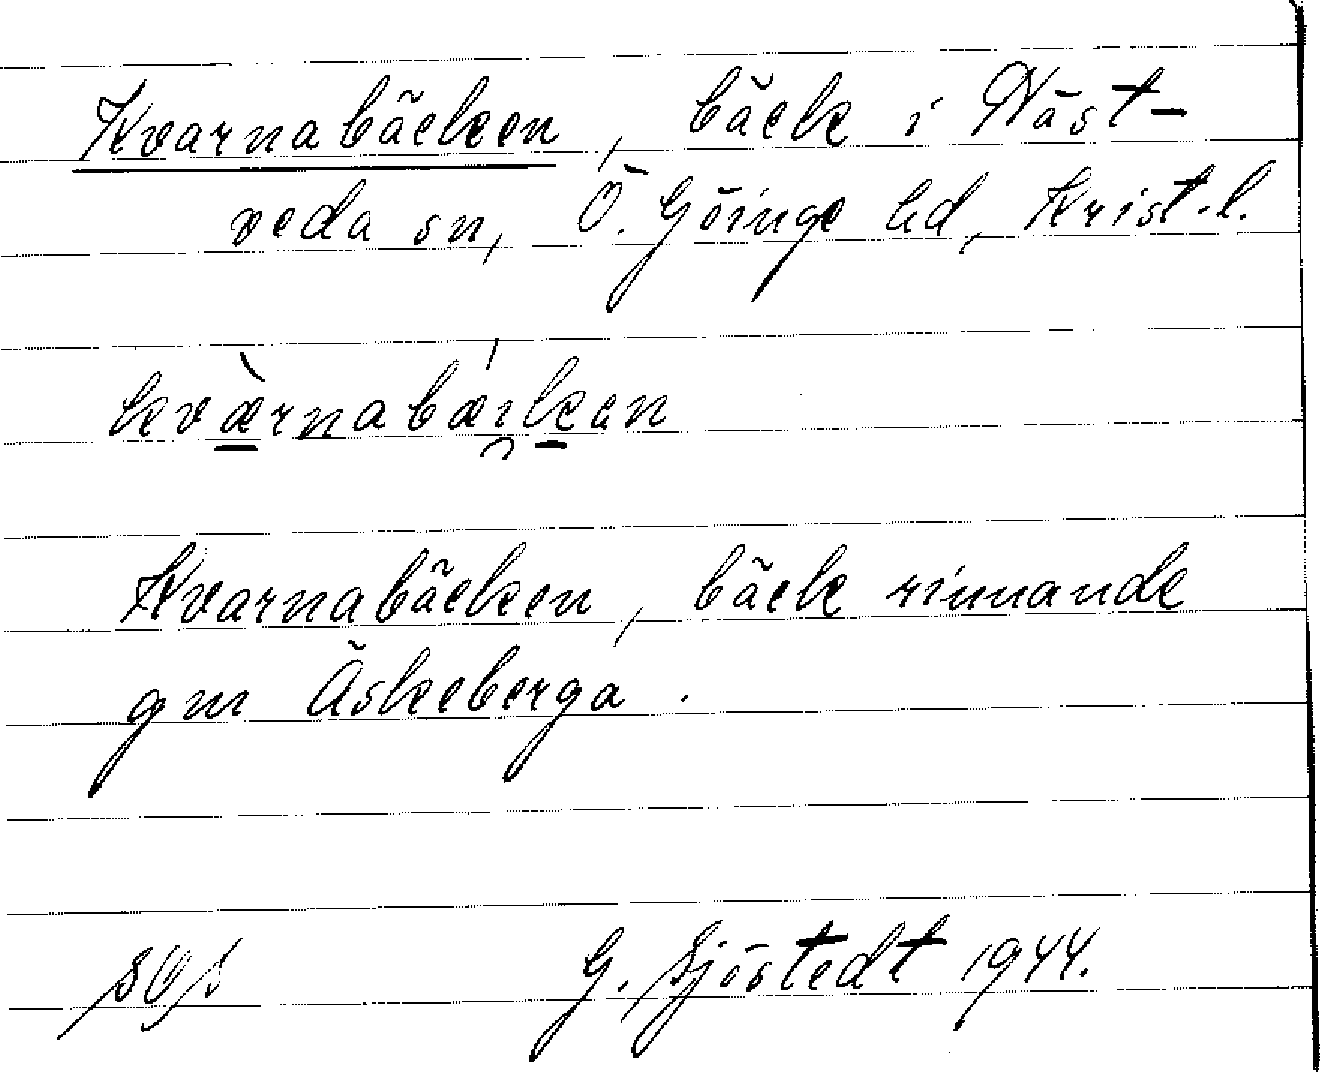 Kvarnabäcken, bäck i Näst-
veda sn, Ö. Göinge hd, Krist.l.
kvæ̀rnabæ̯ıkan
Kvarnabäcken, bäck rinnande
gm Äskeberga.
G. Sjöstedt 1944.